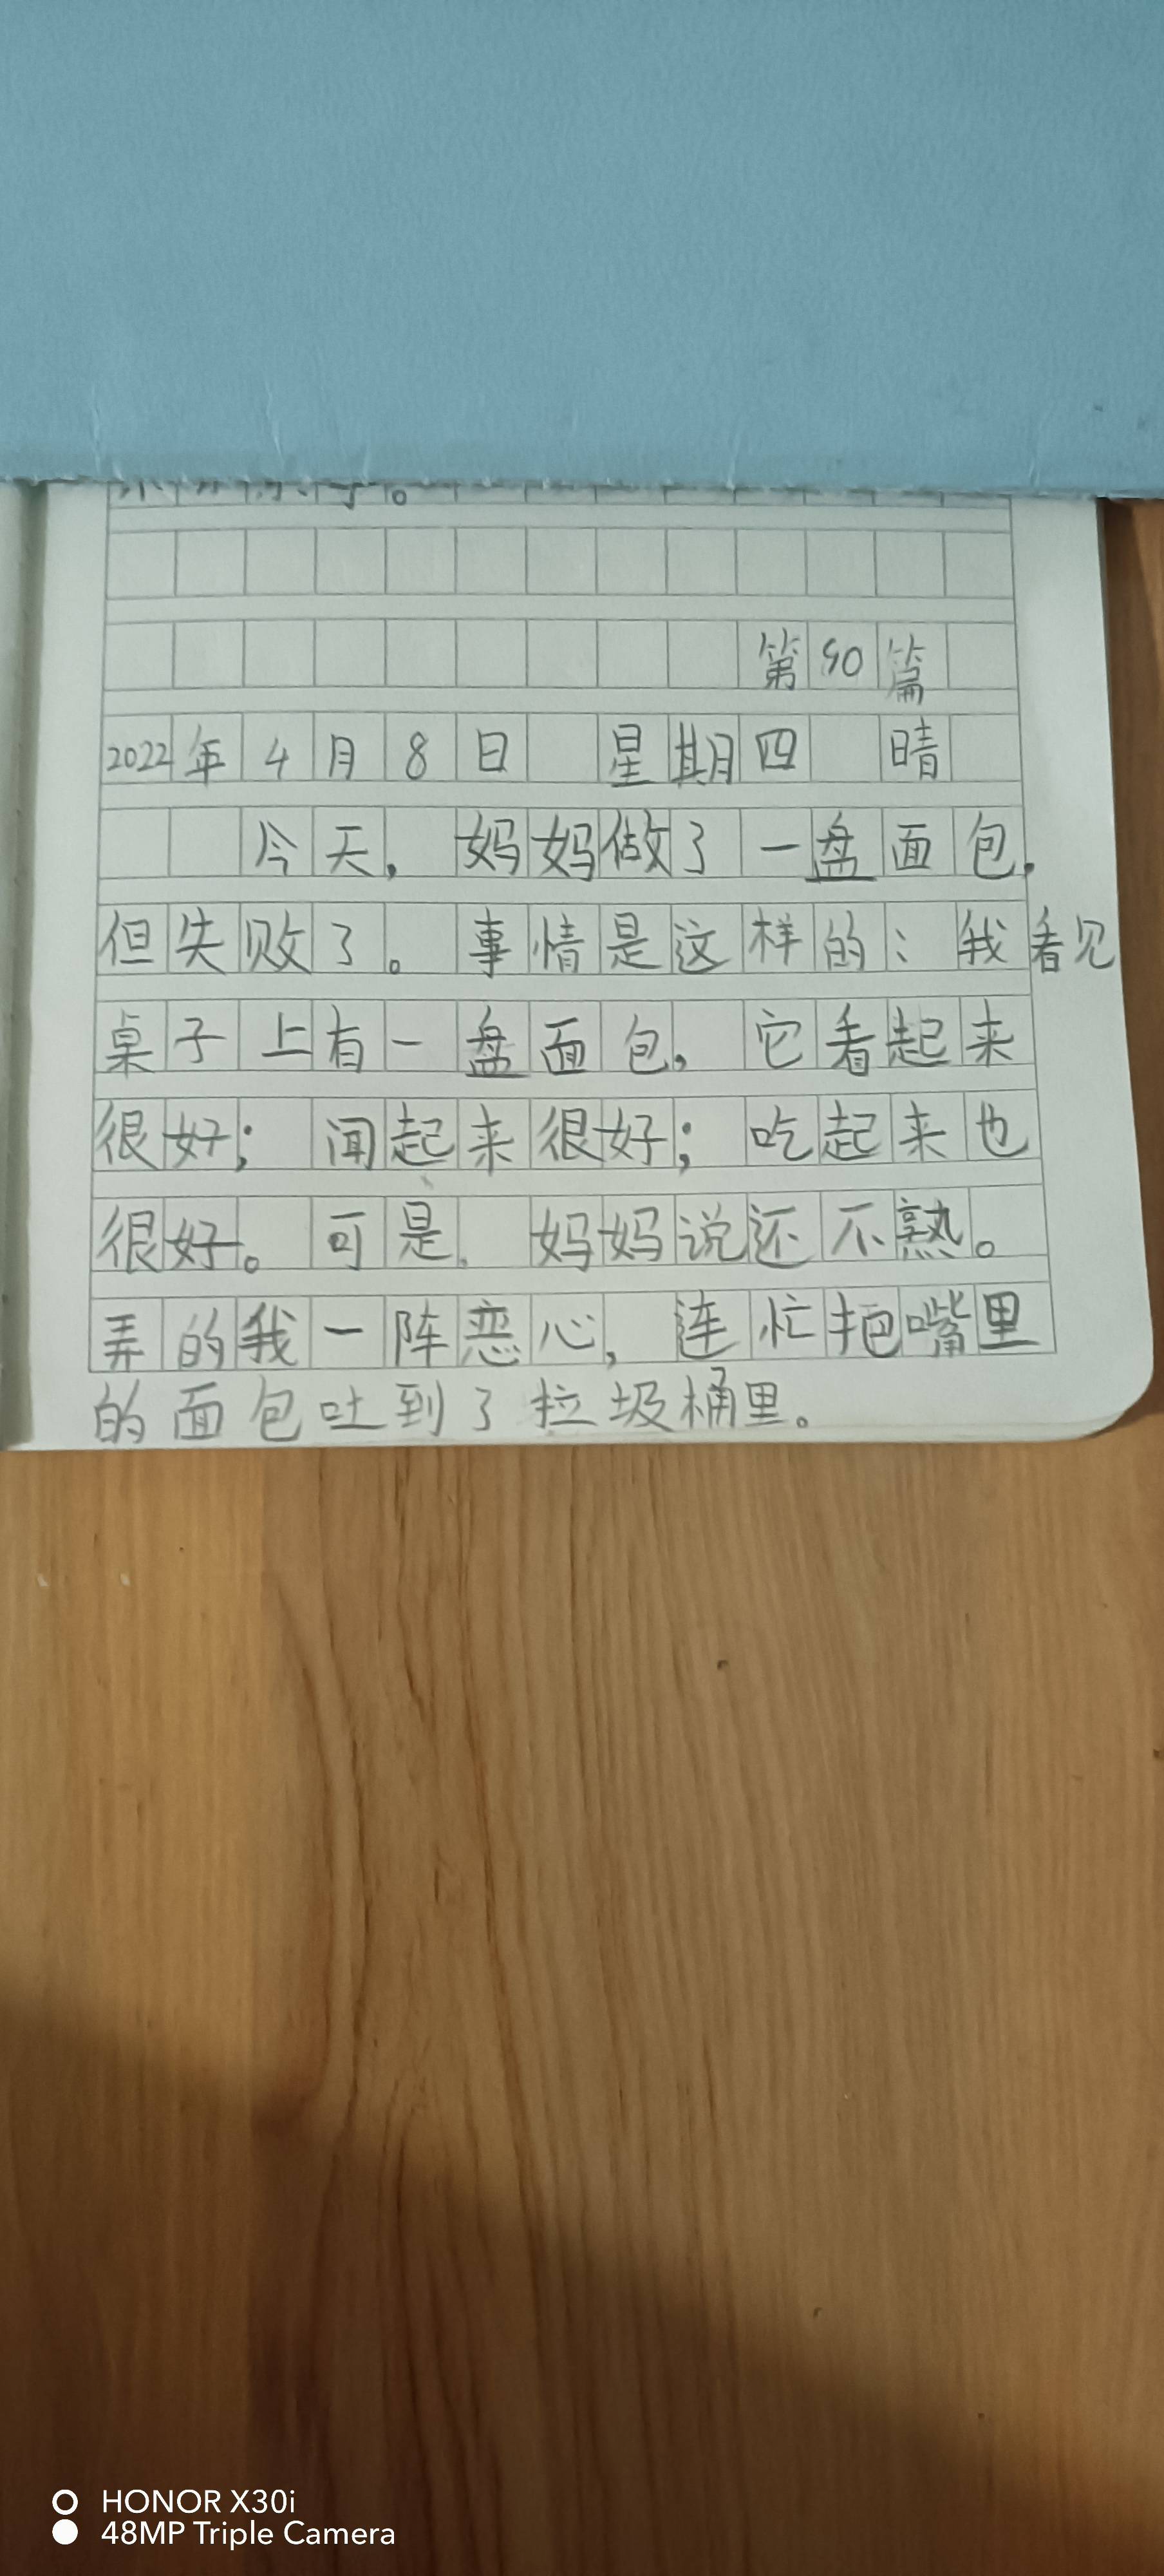 第90篇
2022年4月8日 星期四 晴
今天，妈妈做了一盘面包，
但失败了。事情是这样的：我看见
桌子上有一盘面包，它看起来
很好；闻起来很好；吃起来也
很好。可是，妈妈说还不熟。
弄的我一阵恶心，连忙把嘴里
的面包吐到了垃圾桶里。
HONOR X30i
48MP Triple Camera